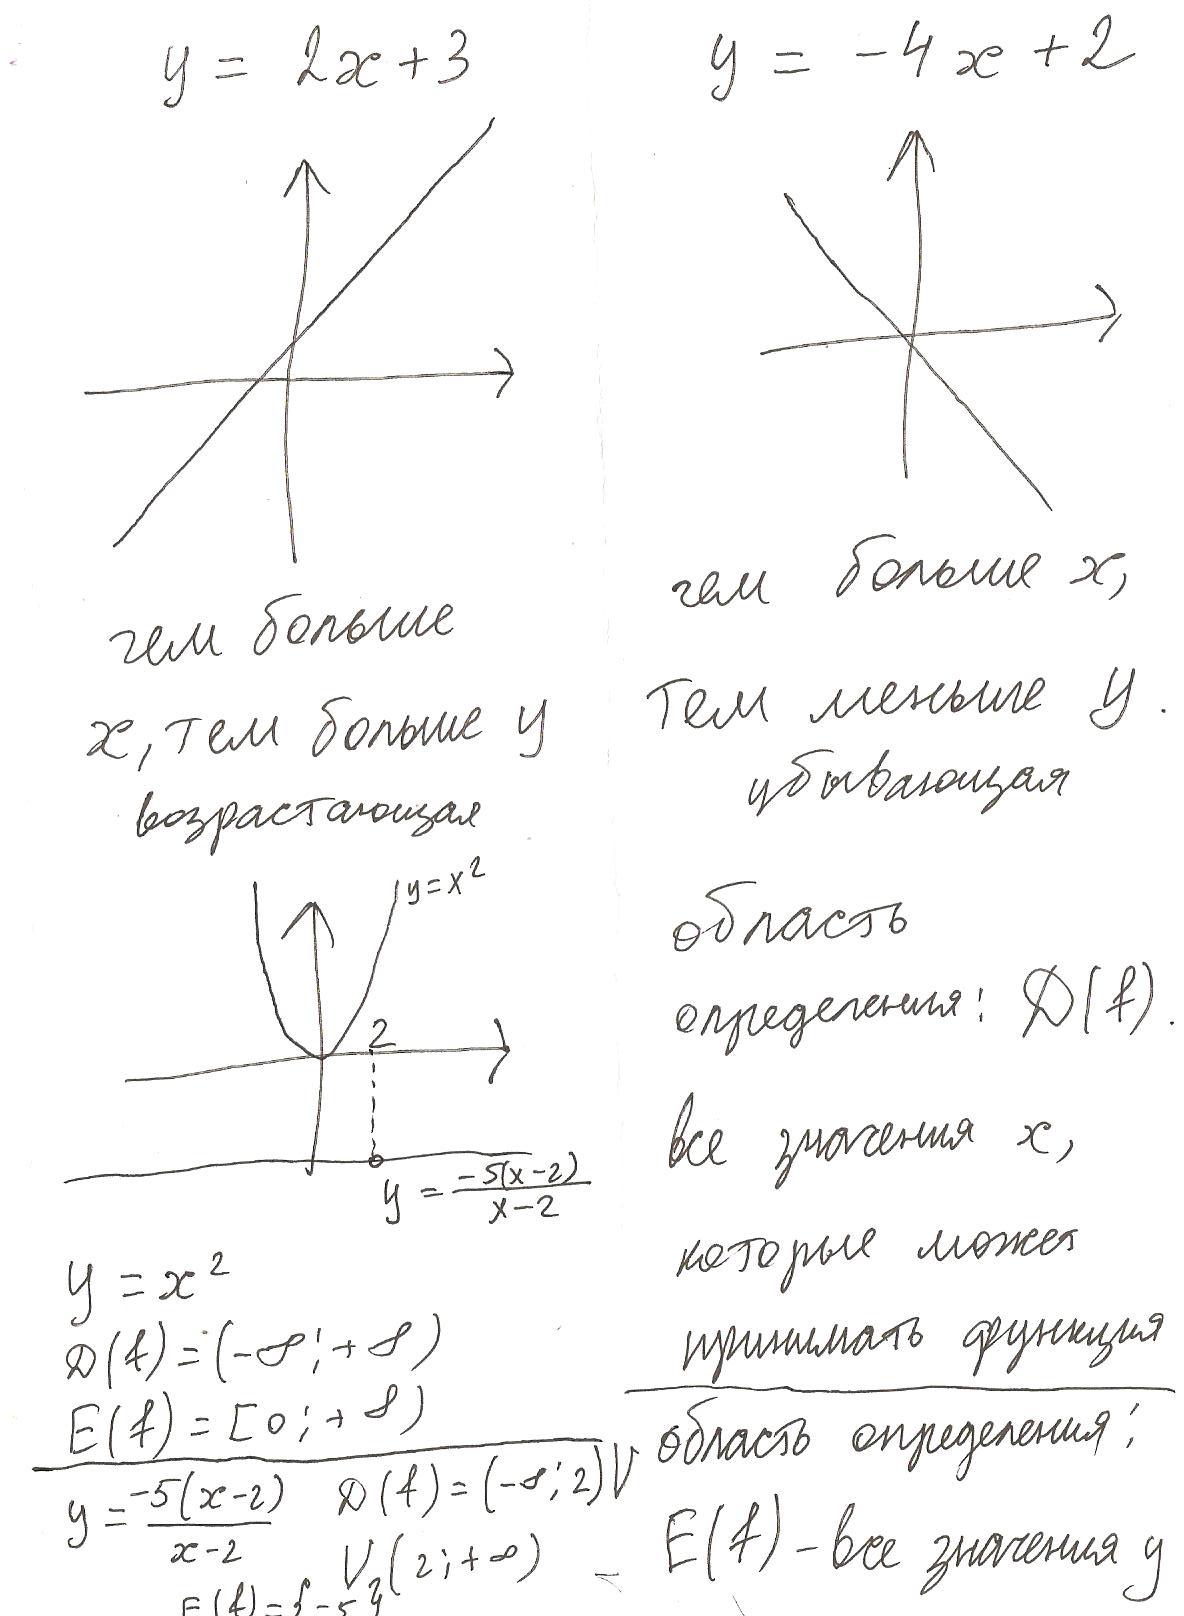 y = 2x + 3
чем больше
x, тем больше y
возрастающая
y = -4x + 2
чем больше x,
тем меньше y.
убывающая
y = x²
2
y = -5(x-2)/x-2
y = x²
D(f) = (-∞; +∞)
E(f) = [0; +∞)
y = -5(x-2)/x-2 D(f) = (-∞; 2) U
U (2; +∞)
E(f) = {-5}
область
определения: D(f).
все значения x,
которые может
принимать функция
область определения:
E(f) - все значения y